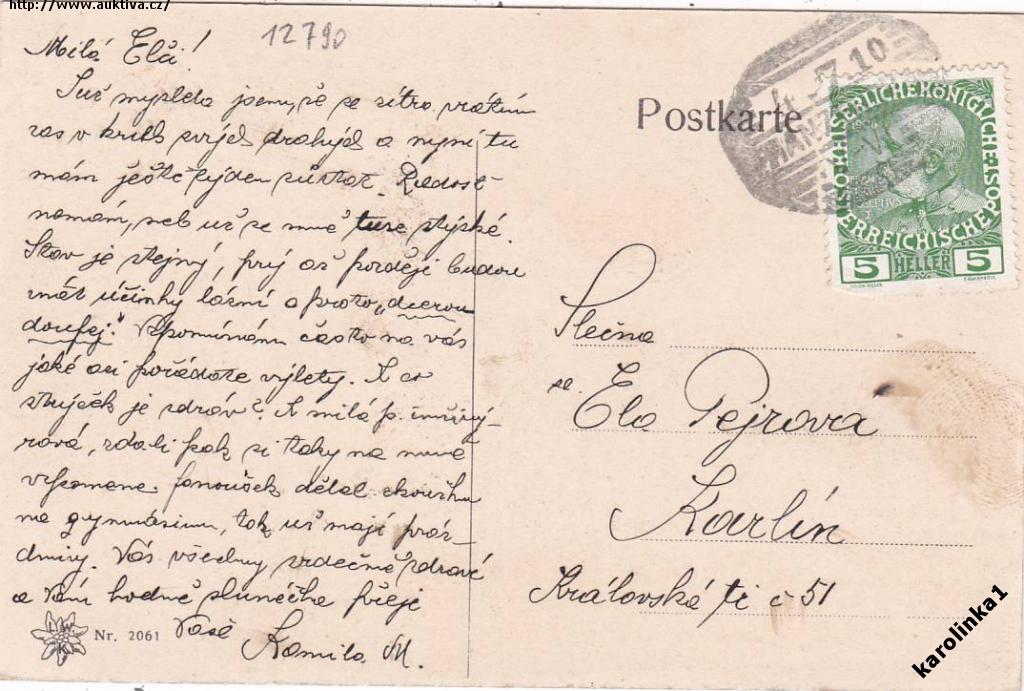 http://www.auktiva.cz/
12790
Milá Elči!
Už myslela jsem, že se zítra vrátím
zas v kruh svých drahých a nyní tu
mám ještě týden zůstat. Radost
nemám, neb už se mně tuze stýská.
Stav je stejný, prý až později budou
znát účinky lázní a proto „
doufej." Vzpomínám často na vás
jaké asi pořádáte výlety. A co
strýček je zdráv? A milá p.
rová, zdali pak si taky na mne
vzpomene. Fanoušek dělal zkoušku
na gymnásium, tak už mají práz-
dniny. Vás všechny srdečně zdraví
a Vám hodně slunéčka přeji
Vaše
Kamila M.
Nr. 2061
Postkarte
7 10
KAISERLICHE KÖNIGLICHE POST
ÖSTERREICHISCHE
5 HELLER 5
Slečna
Ela Pejrova
Karlín
Královská tř č 51
karolinka1